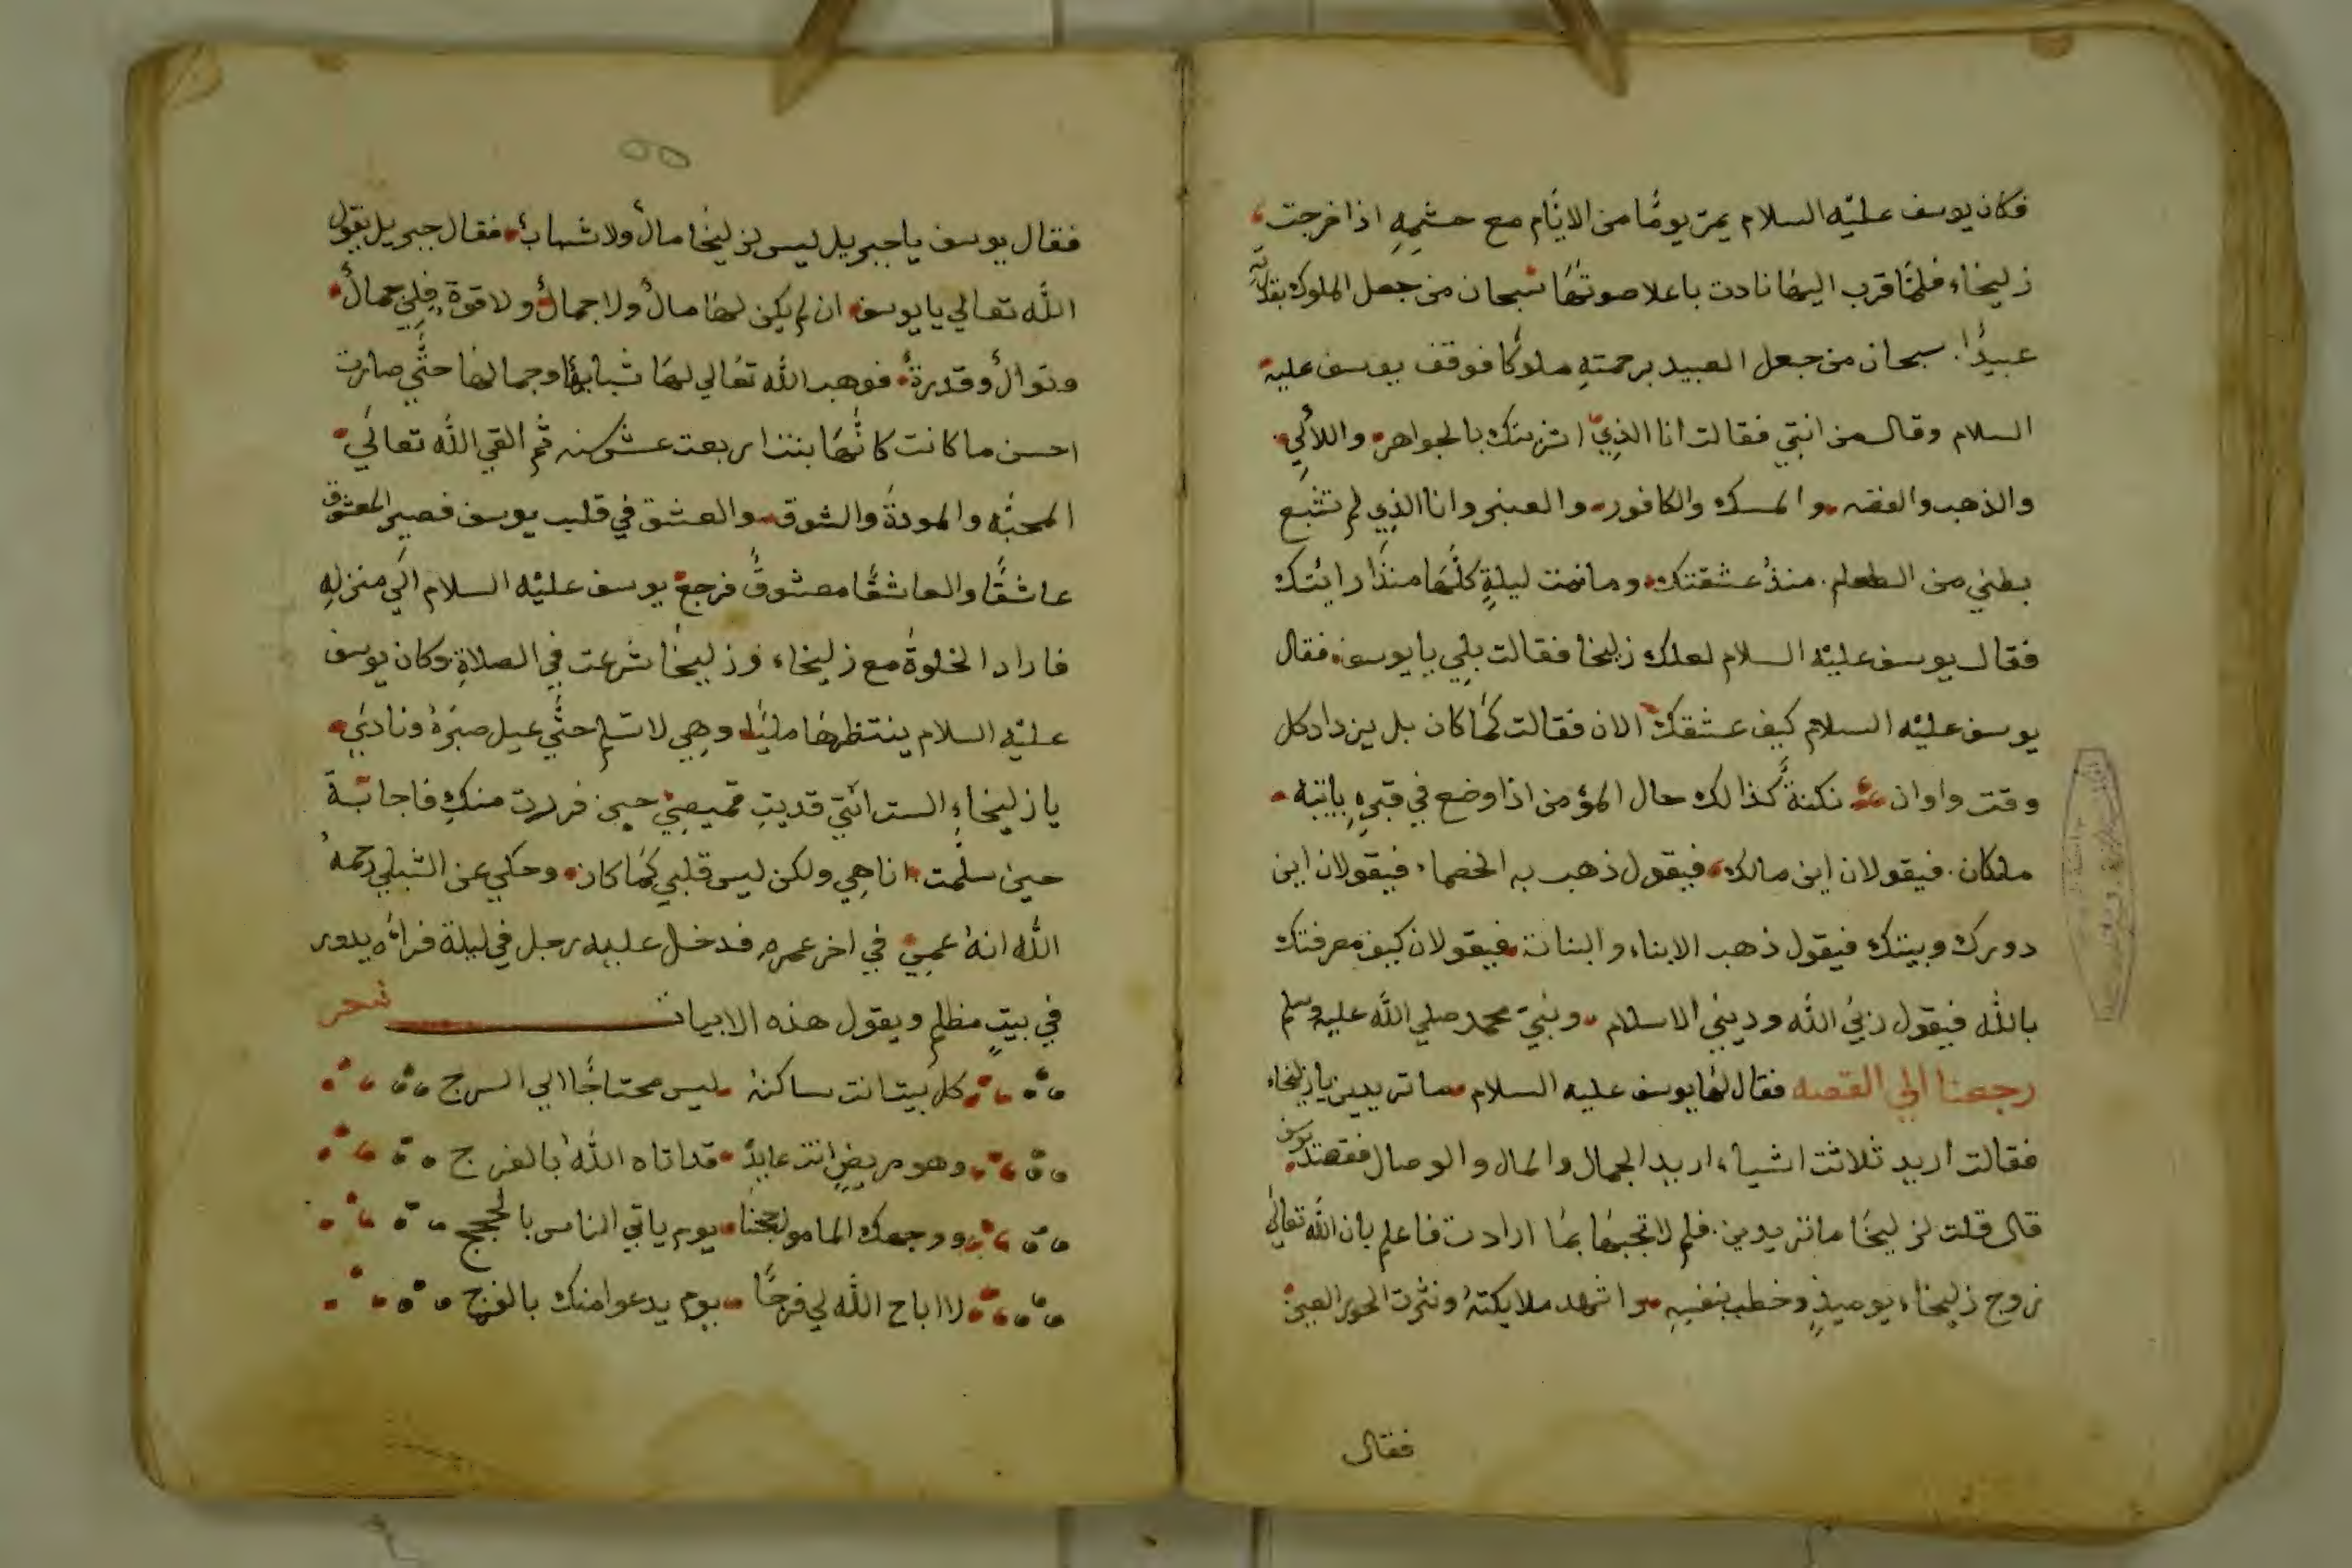 فكان يوسف عليه السلام يمر يومًا من الايام مع حشمه اذا خرجت
زليخاء فلما قرب اليها نادت باعلا صوتها سبحان من جعل الملوك بقدرته
عبيدًا. سبحان من جعل العبيد برحمته ملوكا فوقف يوسف عليه
السلام وقال من انتي فقالت انا الذي اشتريتك بالجواهر واللألي
والذهب والفضه والمسك والكافور والعنبر وانا الذي لم تشبع
بطني من الطعام. منذ عشقتك وما نمت ليلةٍ كلها منذ رايتك
فقال يوسف عليه السلام لعلك زليخا فقالت بلي يا يوسف فقال
يوسف عليه السلام كيف عشقك الان فقالت كما كان بل يزداد كل
وقت واوان نكتة كذالك حال المؤمن اذا وضع في قبره ياتيه
ملكان. فيقولان اين مالك فيقول ذهب به الخصماء فيقولان اين
دورك وبيتك فيقول ذهب الابناء والبنات فيقولان كيف معرفتك
بالله فيقول ربي الله وديني الاسلام ونبي محمد صلي الله عليه وسلم
رجعنا الي القصه فقال لها يوسف عليه السلام ما تريدين يا زليخاء
فقالت اريد ثلاثت اشياء اريد الجمال والمال والوصال فقصد يوسف
قال قلت لزليخا ما تريدين. فلم لا تجبها بما ارادت فاعلم بان الله تعالي
زوج زليخاء يوميذٍ وخطب بنفسه واشهد ملايكته ونثرت الحور العين
فقال
فقال يوسف يا جبريل ليس لزليخا مال ولا شباب فقال جبريل يقول
الله تعالي يا يوسف ان لم يكن لها مال ولا جمال ولا قوة فلي جمال
ونوال وقدرة فوهب الله تعالي لها شبابها وجمالها حتي صارت
احسن ما كانت كانها بنت اربعت عشر سنه ثم القي الله تعالي
المحبه والمودة والشوق والعشق في قلب يوسف فصير المعشوق
عاشقًا والعاشقًا معشوق فرجع يوسف عليه السلام الي منزله
فاراد الخلوة مع زليخاء وزليخا شرعت في الصلاة وكان يوسف
عليه السلام ينتظرها مليًا وهي لا تسلم حتي عيل صبره ونادي
يا زليخاء الست انتي قديت قميصي حين فررت منك فاجابة
حين سلمت انا هي ولكن ليس قلبي كما كان وحكي عن الشبلي رحمه
الله انه عمي في اخر عمره فدخل عليه رجل في ليلة فراه يدور
في بيتٍ مظلم ويقول هذه الابيات شعر
كل بيت انت ساكنه ليس محتاجًا الي السرج
وهو مريضٍ انت عايد قد اتاه الله بالفرج
ووجهك المامول حجتنا يوم ياتي الناس بالحجج
لا اباح الله لي فرجًا يوم يدعوا منك بالفرج